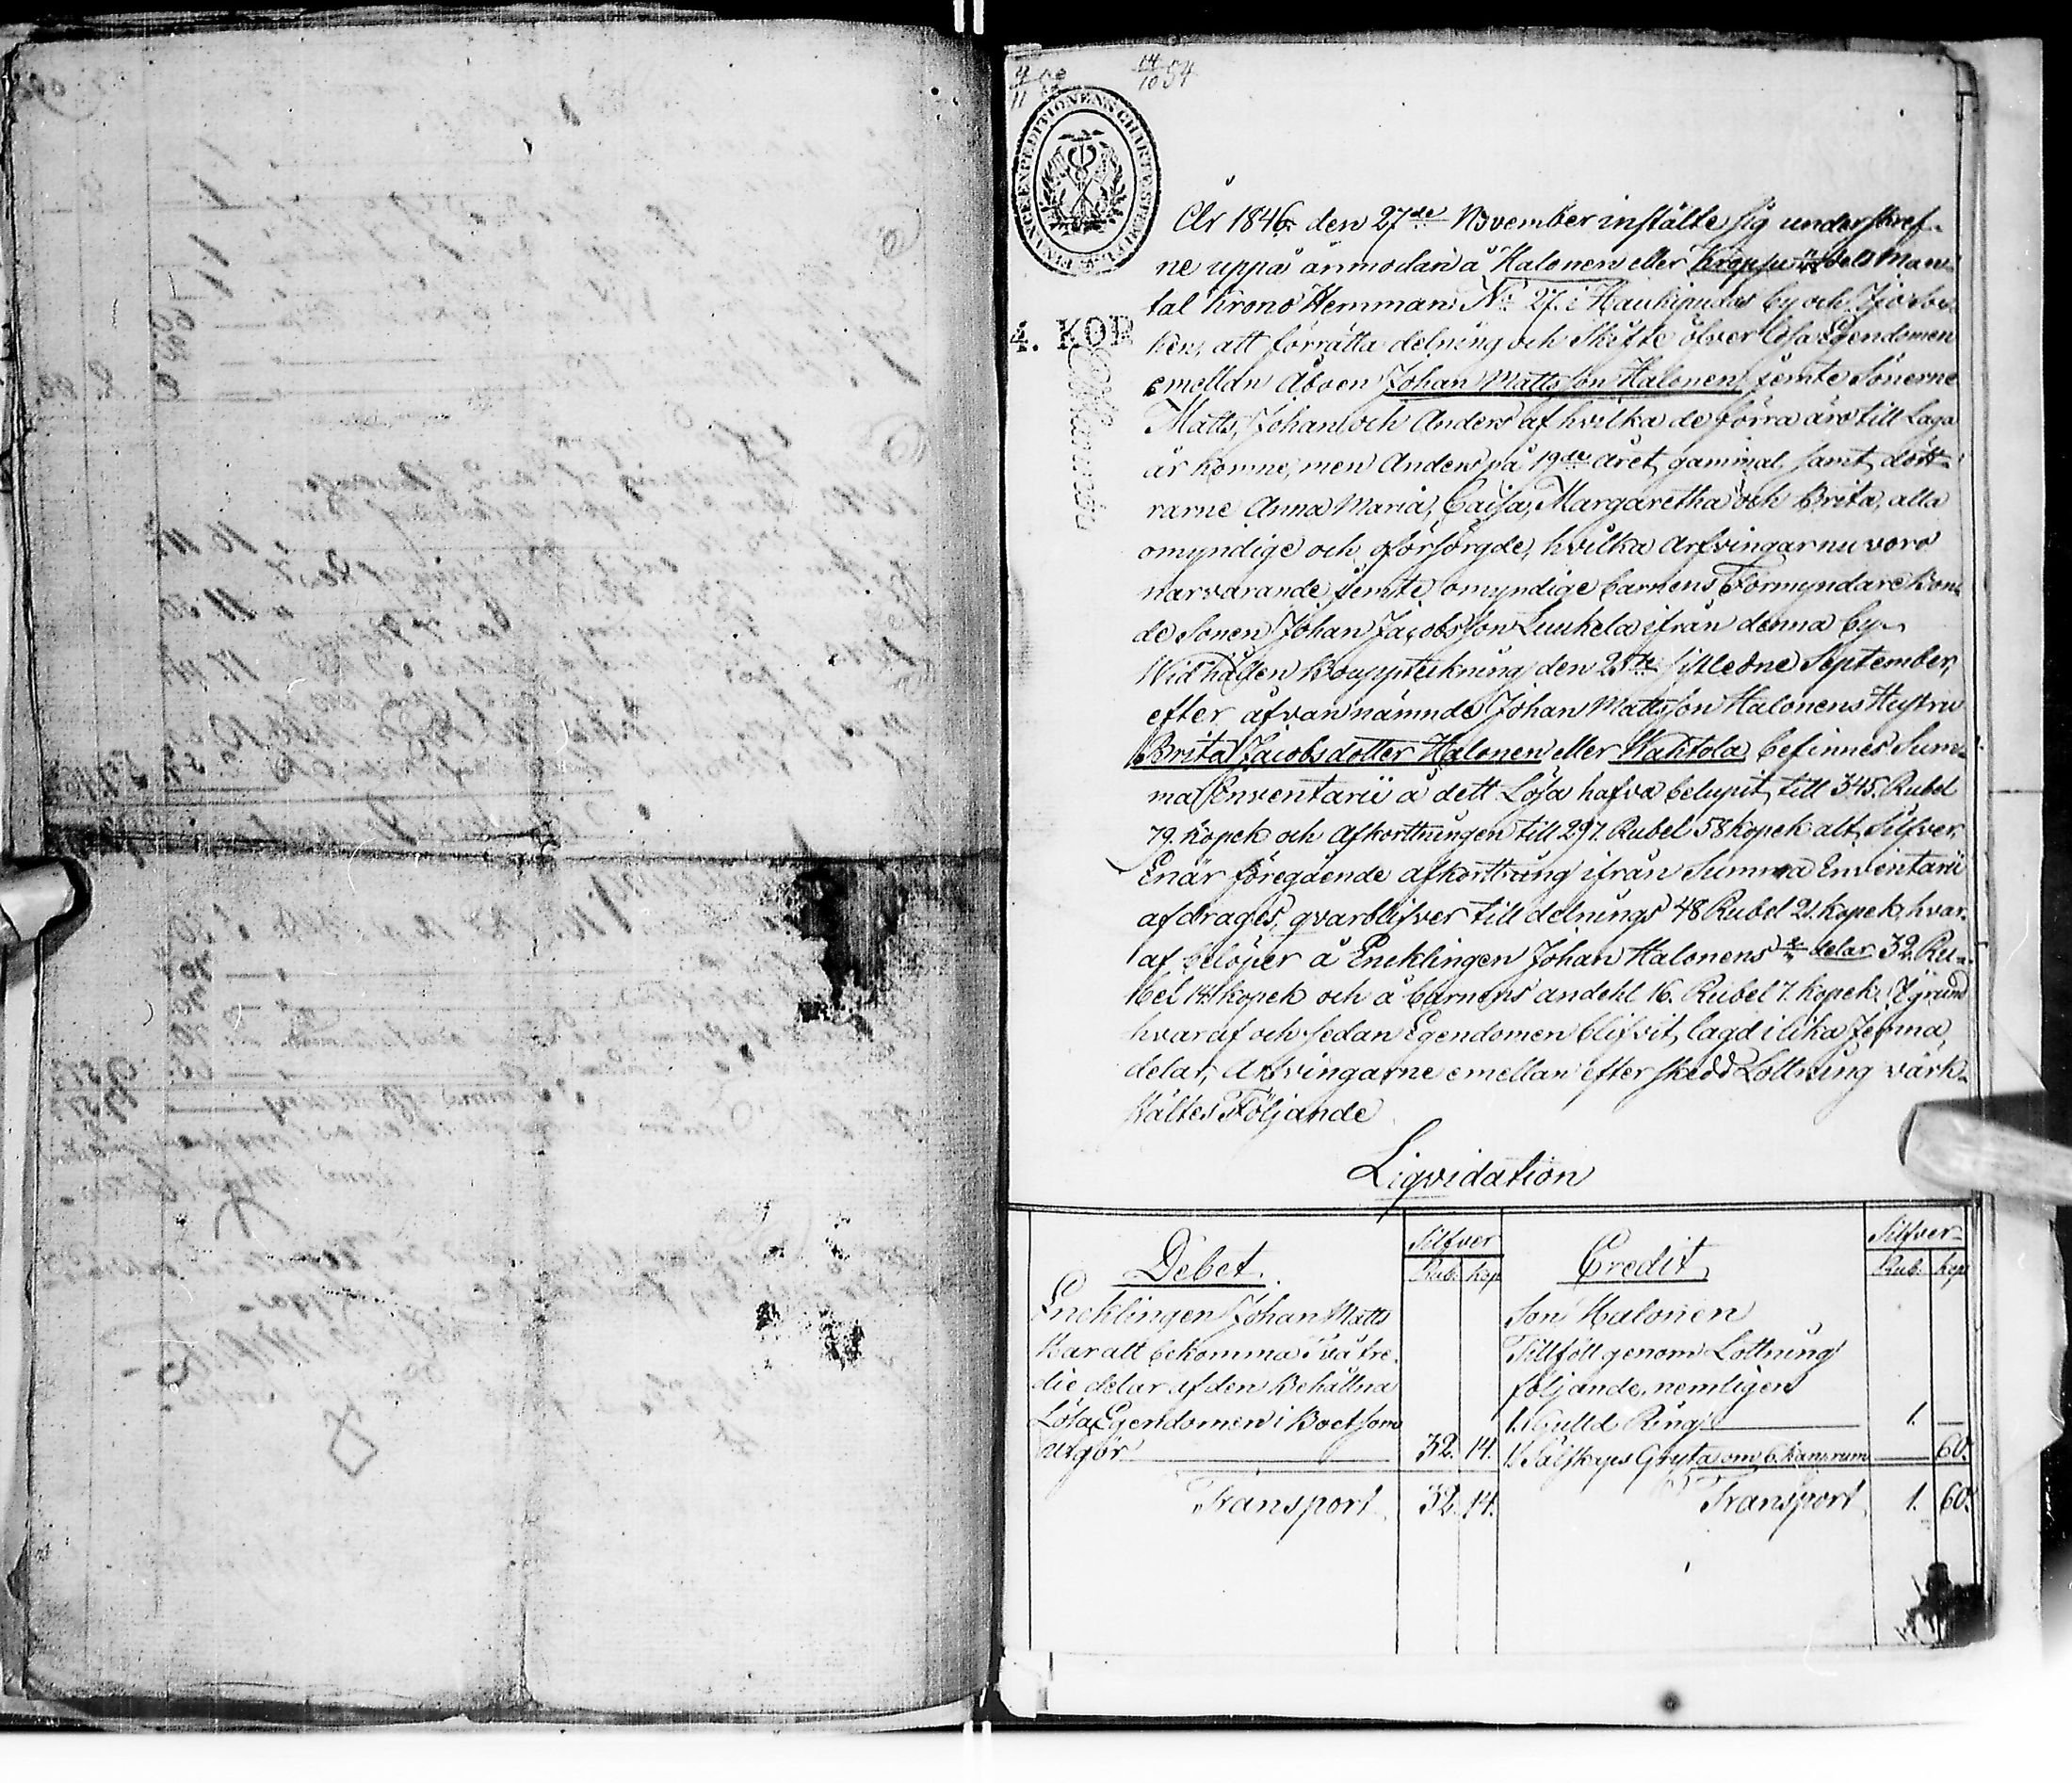 9/11
14/10 54
FINANCE EXPEDITIONENS CHARTÆ STEMPEL
4. KOP
År 1846 den 27de November instälte sig underskref-
ne uppå anmodan å Halonen eller Kropsu mantal
tal Krono Hemman No 27. i Haukipudas by och Jjo Soc-
ken, att förrätta delning och Skifte öfver lösa Egendomen
emellan Åboen Johan Mattsson Halonen jemte Sönerne
Matts, Johan och Anders af hvilka de förra äro till Laga
år komne, men Anders på 19de året gammal, samt dött-
rarne Anna Maria, Caisa, Margaretha och Brita, alla
omyndige och oförsörgde, hvilka Arfvingar nu voro
närvarande jemte omyndige barnens Förmyndare Bon-
de Sonen Johan Jacobsson Luukela ifrån denna by.
Wid hållen Bouppteckning den 25te sistledne September,
efter afvannämnde Johan Mattsson Halonens Hustru
Brita Jacobsdotter Halonen eller Kahtola befinnes Sum-
ma Inventarii å dett Lösa hafva belupit till 345. Rubel
79. Kopek och Afkorttningen till 297. Rubel 58 Kopek alt Silfver.
Enär föregående afkorttning ifrån Summa Inventarii
afdrages, qvarblifver till delnings 48 Rubel 21. Kopek, hvar-
af belöper å Encklingen Johan Halonens 2/3 delar 32. Ru-
bel 14. Kopek och å barnens andehl 16. Rubel 7. Kopek. I grund
hvaraf och sedan Egendomen blifvit lagd i lika jemna
delar, Arfvingarne emellan efter skedd Lottning värk-
ställtes Följande
Liqvidation
Debet. Silfver Credit Silfver
Rub. Kop Rub. Kop
Encklingen Johan Matts son Halonen
Har att bekomma Två tre- Tillföll genom Lottning
die delar af den Behållna följande, nemligen
Lösa Egendomen i Boet som 1. Gulld Ring 1. —
utgör 32. 14. 1. Gryta om 6. kannrum 60.
Transport 32. 14. Transport 1. 60.